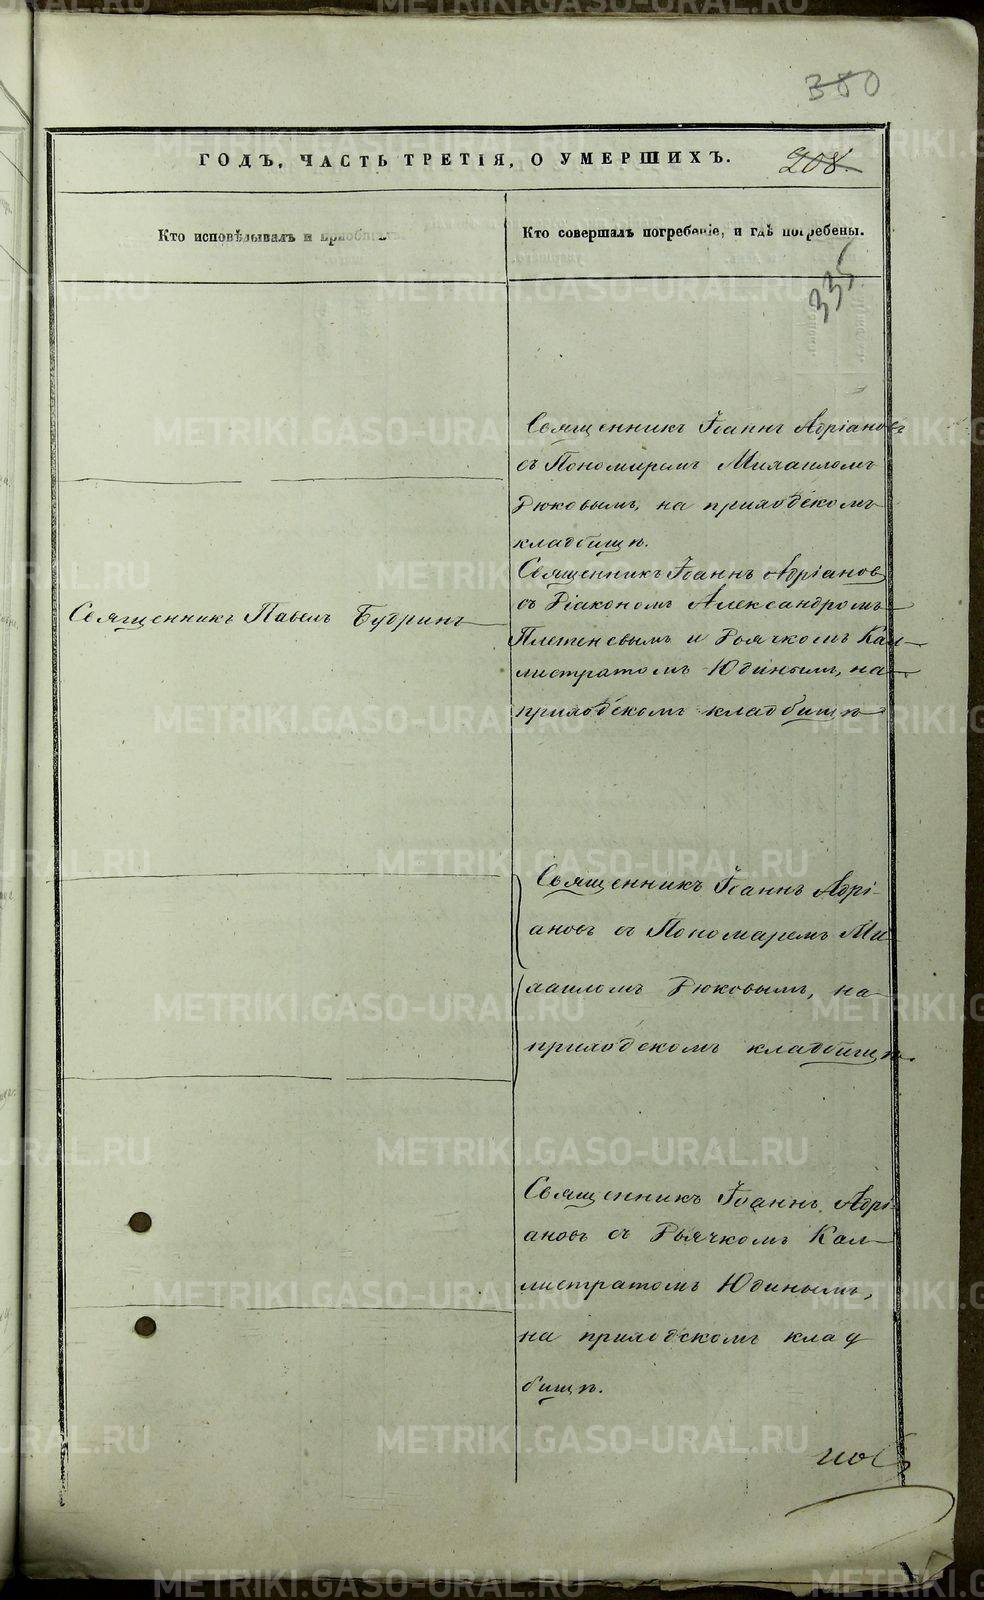 380
ГОДЪ, ЧАСТЬ ТРЕТІЯ, О УМЕРШИХЪ.
208.
Кто исповѣдывалъ и
Кто совершалъ погребеніе, и гдѣ погребены.
335
Священникъ Іоаннъ Адріановъ
съ Пономаремъ Михаиломъ
Рюковымъ, на приходскомъ
кладбищѣ.
Священникъ Павелъ Будринъ
Священникъ Іоаннъ Адріановъ
съ Діакономъ Александромъ
Плетеневымъ и Дьячкомъ Кал-
листратомъ Юдинымъ, на
приходскомъ кладбищѣ
Священникъ Іоаннъ Адрі-
ановъ съ Пономаремъ Ми-
хаиломъ Рюковымъ, на
приходскомъ кладбищѣ.
Священникъ Іоаннъ Адрі-
ановъ съ Дьячкомъ Кал-
листратомъ Юдинымъ,
на приходскомъ клад
бищѣ.
METRIKI.GASO-URAL.RU